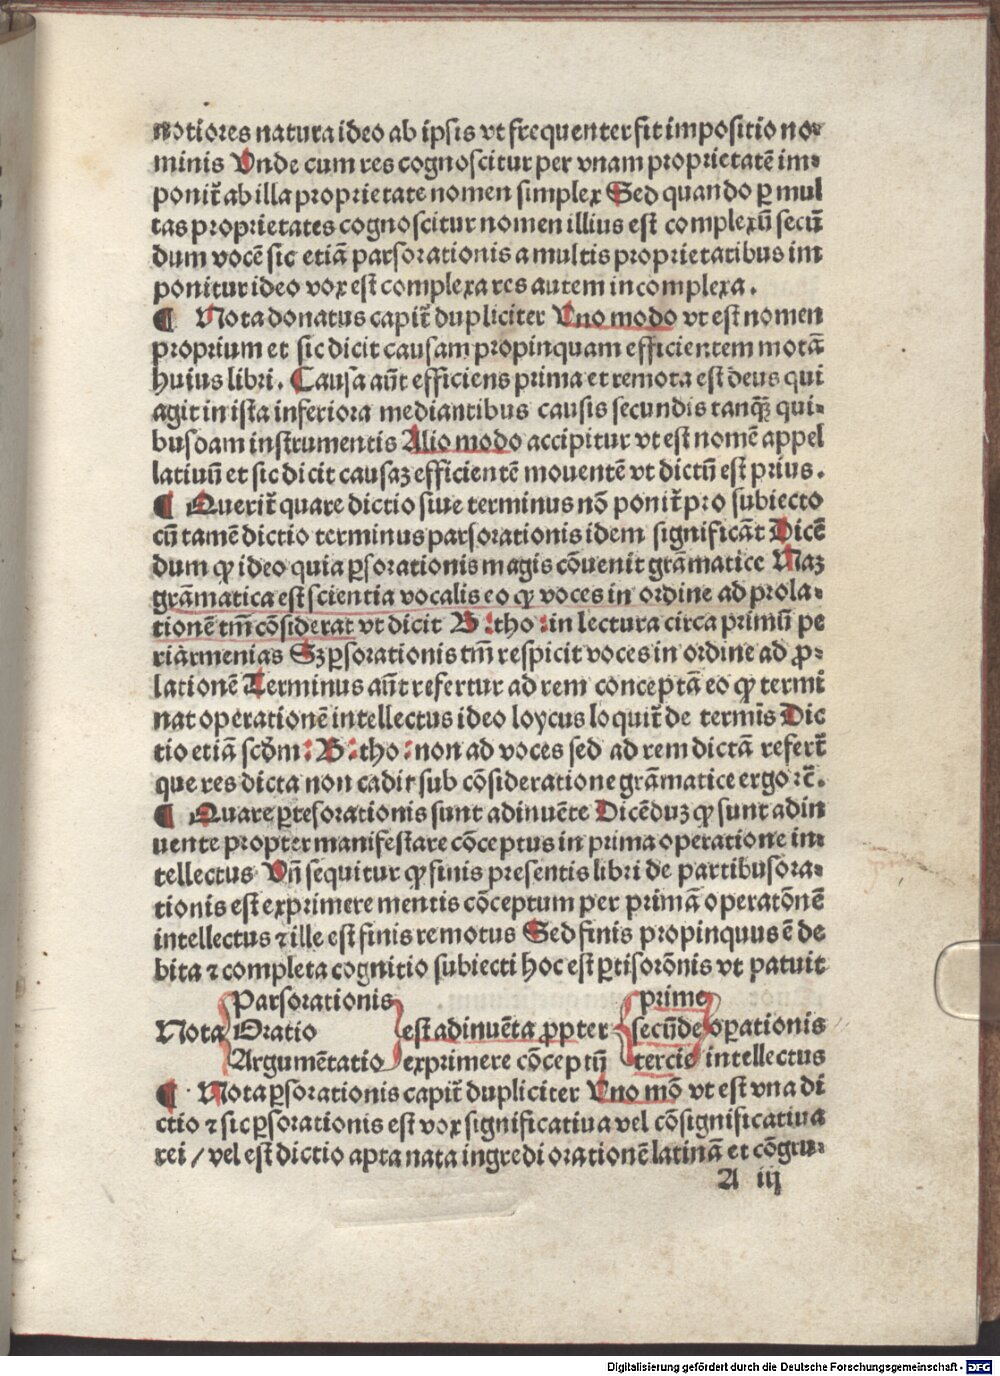 notiores natura ideo ab ipsis vt frequenter fit impositio no-
minis Vnde cum res cognoscitur per vnam proprietatē im-
ponit᷑ ab illa proprietate nomen simplex Sed quando ꝑ mul
tas proprietates cognoscitur nomen illius est complexū secū
dum vocē sic etiā parsorationis a multis proprietatibus im
ponitur ideo vox est complexa res autem incomplexa.
¶ Nota donatus capit᷑ dupliciter Vno modo vt est nomen
proprium et sic dicit causam propinquam efficientem motā
huius libri. Causa aūt efficiens prima et remota est deus qui
agit in ista inferiora mediantibus causis secundis tanqꝫ qui-
busdam instrumentis Alio modo accipitur vt est nomē appel
latiuū et sic dicit causaꝫ efficientē mouentē vt dictū est prius.
¶ Querit᷑ quare dictio siue terminus nō ponit᷑ pro subiecto
cū tamē dictio terminus parsorationis idem significāt Dicē
dum ꝙ ideo quia ꝑsorationis magis cōuenit grāmatice Naꝫ
grāmatica est scientia vocalis eo ꝙ voces in ordine ad prola-
tionē tm̄ cōsiderat vt dicit B:tho:in lectura circa primū pe
riarmenias Sꝫ ꝑsorationis tm̄ respicit voces in ordine ad ꝓ-
lationē Terminus aūt refertur ad rem conceptā eo ꝙ termi
nat operationē intellectus ideo loycus loquit᷑ de termis̄ Dic
tio etiā scd̄m:B:tho:non ad voces sed ad rem dictā refert᷑
que res dicta non cadit sub cōsideratione grāmatice ergo ꝛc̄.
¶ Quare ꝑtesorationis sunt adinuēte Dicēduꝫ ꝙ sunt adin
uente propter manifestare cōceptus in prima operatione in-
tellectus Vn̄ sequitur ꝙ finis presentis libri de partibusora-
tionis est exprimere mentis cōceptum per primā operatōnē
intellectus ⁊ ille est finis remotus Sed finis propinquus ē de
bita ⁊ completa cognitio subiecti hoc est ꝑtisorōnis vt patuit
Parsorationis prime
Nota Oratio est adinuēta ꝓpter secūde oꝑationis
Argumētatio exprimere cōceptū tercie intellectus
¶ Nota ꝑsorationis capit᷑ dupliciter Vno mō vt est vna di
ctio ⁊ sic ꝑsorationis est vox significatiua vel cōsignificatiua
rei / vel est dictio apta nata ingredi orationē latinā et cōgru-
A iij
Digitalisierung gefördert durch die Deutsche Forschungsgemeinschaft - DFG